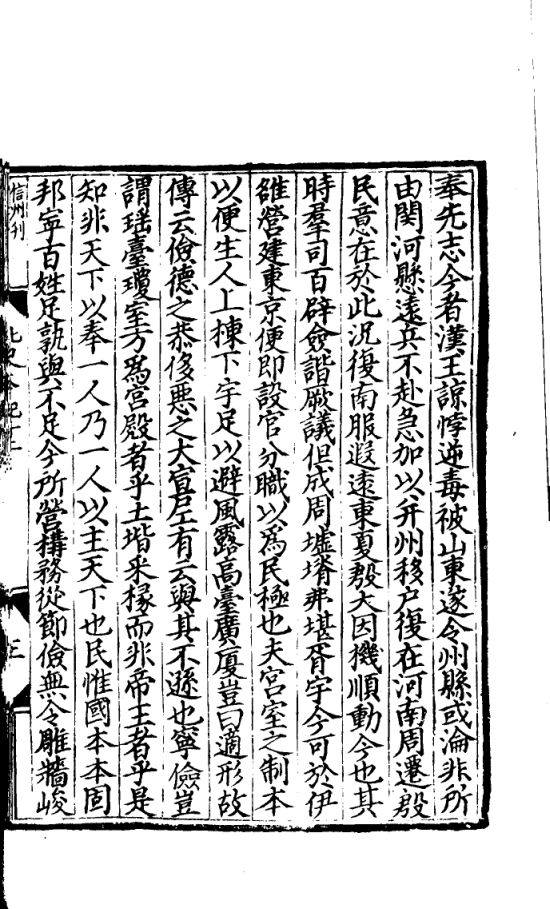 奉先志今者漢王諒悖逆毒被山東遂令州縣或淪非所
由關河縣遠兵不赴急加以并州移户復在河南周遷殷
民意在於此況復南服遐遠東夏殷大因機順動今也其
時羣司百辟僉諧厥議但成周墟塉弗堪胥宇今可於伊
雒營建東京便即設官分職以爲民極也夫宫室之制本
以便生人上棟下宇足以避風露高臺廣厦豈曰適形故
傳云儉德之恭侈惡之大宣尼有云與其不遜也寧儉豈
謂瑶臺瓊室方爲宫殿者乎土堦采椽而非帝王者乎是
知非天下以奉一人乃一人以主天下也民惟國本本固
邦寧百姓足孰與不足今所營構務從節儉無令雕牆峻
信州刊
三